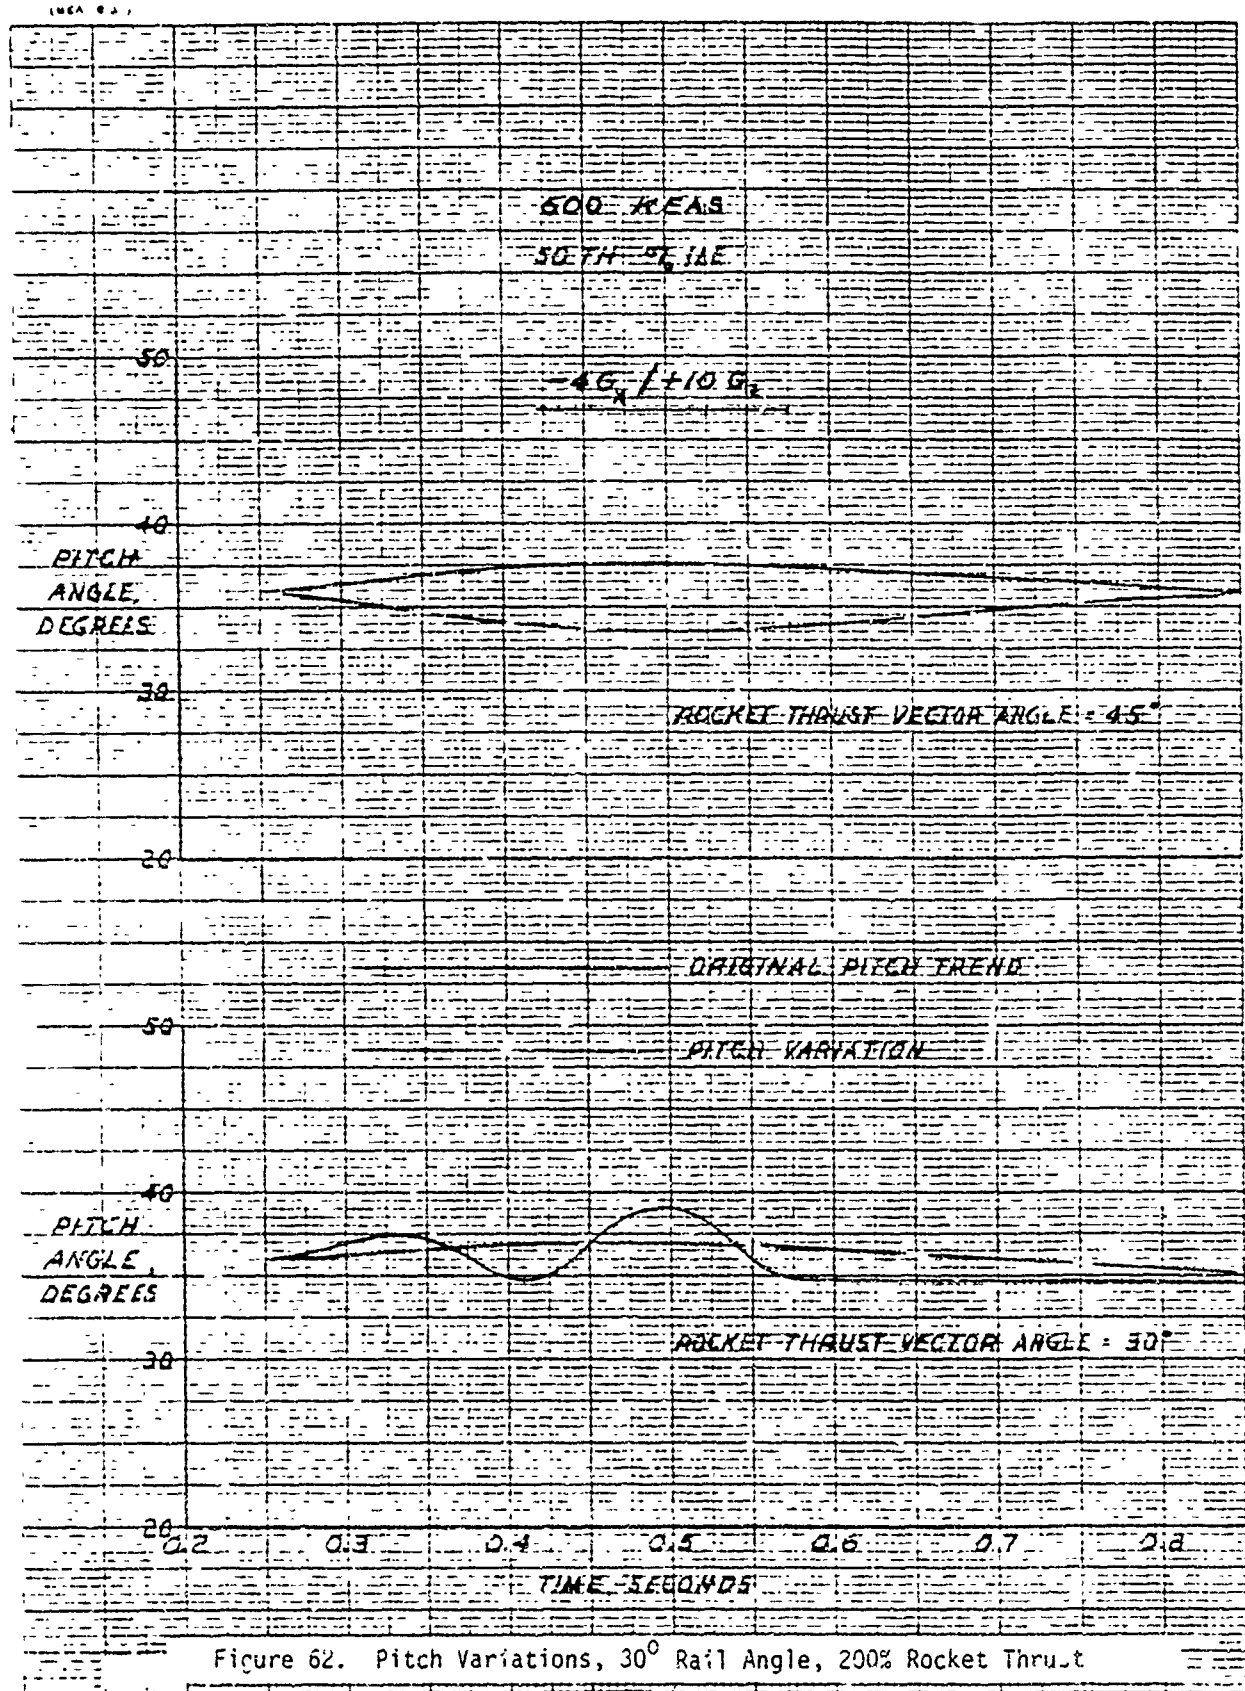 600 KEAS
50 TH %ILE
-4 Gx / +10 Gz
50
40
PITCH
ANGLE,
DEGREES
30
ROCKET THRUST VECTOR ANGLE = 45°
20
ORIGINAL PITCH TREND
50
PITCH VARIATION
40
PITCH
ANGLE,
DEGREES
30
ROCKET THRUST VECTOR ANGLE = 30°
20
0.2 0.3 0.4 0.5 0.6 0.7 0.8
TIME, SECONDS
Figure 62. Pitch Variations, 30⁰ Rail Angle, 200% Rocket Thrust